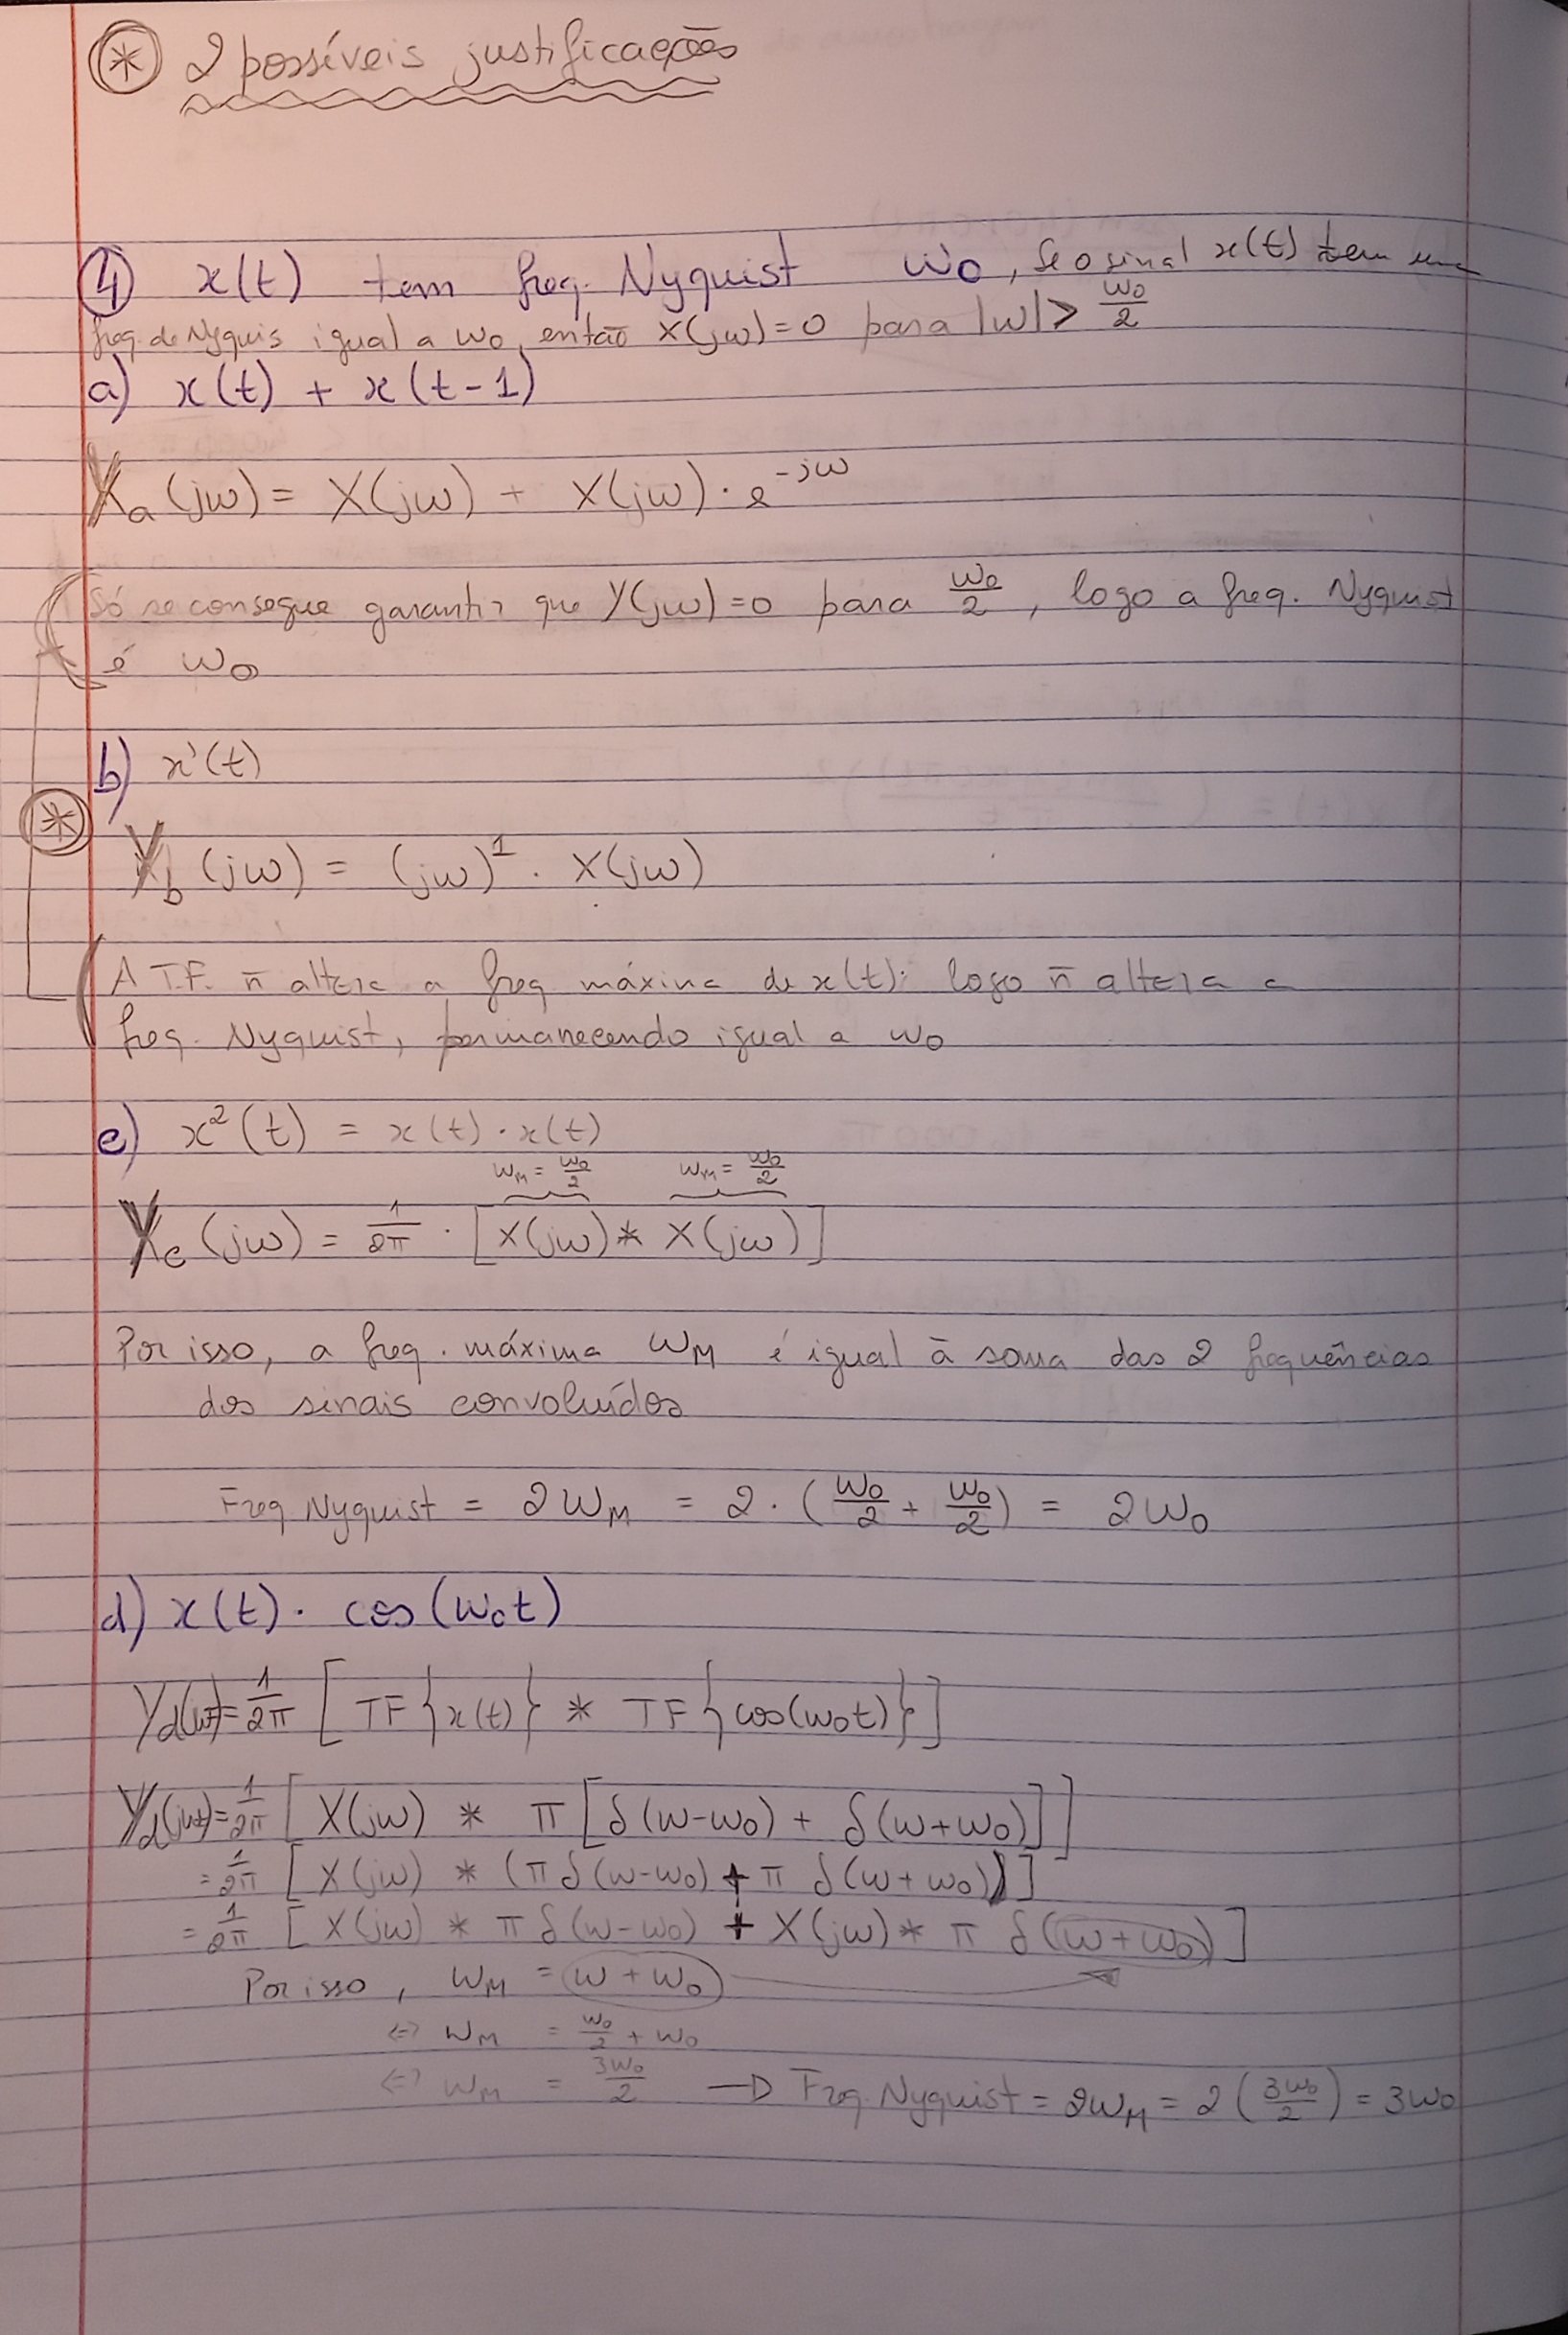 * 2 possíveis justificações
4 x(t) tem freq. Nyquist ω0, Se o sinal x(t) tem uma
freq. de Nyquis igual a ω0, então X(jω)=0 para |ω| > ω0/2
a) x(t) + x(t-1)
Ya(jω) = X(jω) + X(jω) · e^-jω
Só se consegue garantir que Y(jω)=0 para ω0/2, logo a freq. Nyquist
é ω0
b) x'(t)
*
Yb(jω) = (jω)^1 · X(jω)
A T.F. ñ altera a freq máxima de x(t); logo ñ altera a
freq. Nyquist, permanecendo igual a ω0
c) x²(t) = x(t) · x(t)
ωM = ω0/2 ωM = ω0/2
Yc(jω) = 1/2π · [X(jω) * X(jω)]
Por isso, a freq. máxima ωM é igual à soma das 2 frequências
dos sinais convoluídos
Freq Nyquist = 2ωM = 2 · (ω0/2 + ω0/2) = 2ω0
d) x(t) · cos(ω0t)
Yd(jω) = 1/2π [TF{x(t)} * TF{cos(ω0t)}]
Yd(jω) = 1/2π [X(jω) * π[δ(ω-ω0) + δ(ω+ω0)]]
= 1/2π [X(jω) * (πδ(ω-ω0) + π δ(ω+ω0))]
= 1/2π [X(jω) * π δ(ω-ω0) + X(jω) * π δ(ω+ω0)]
Por isso, ωM = ω + ω0
<=> ωM = ω0/2 + ω0
<=> ωM = 3ω0/2 → Freq. Nyquist = 2ωM = 2(3ω0/2) = 3ω0